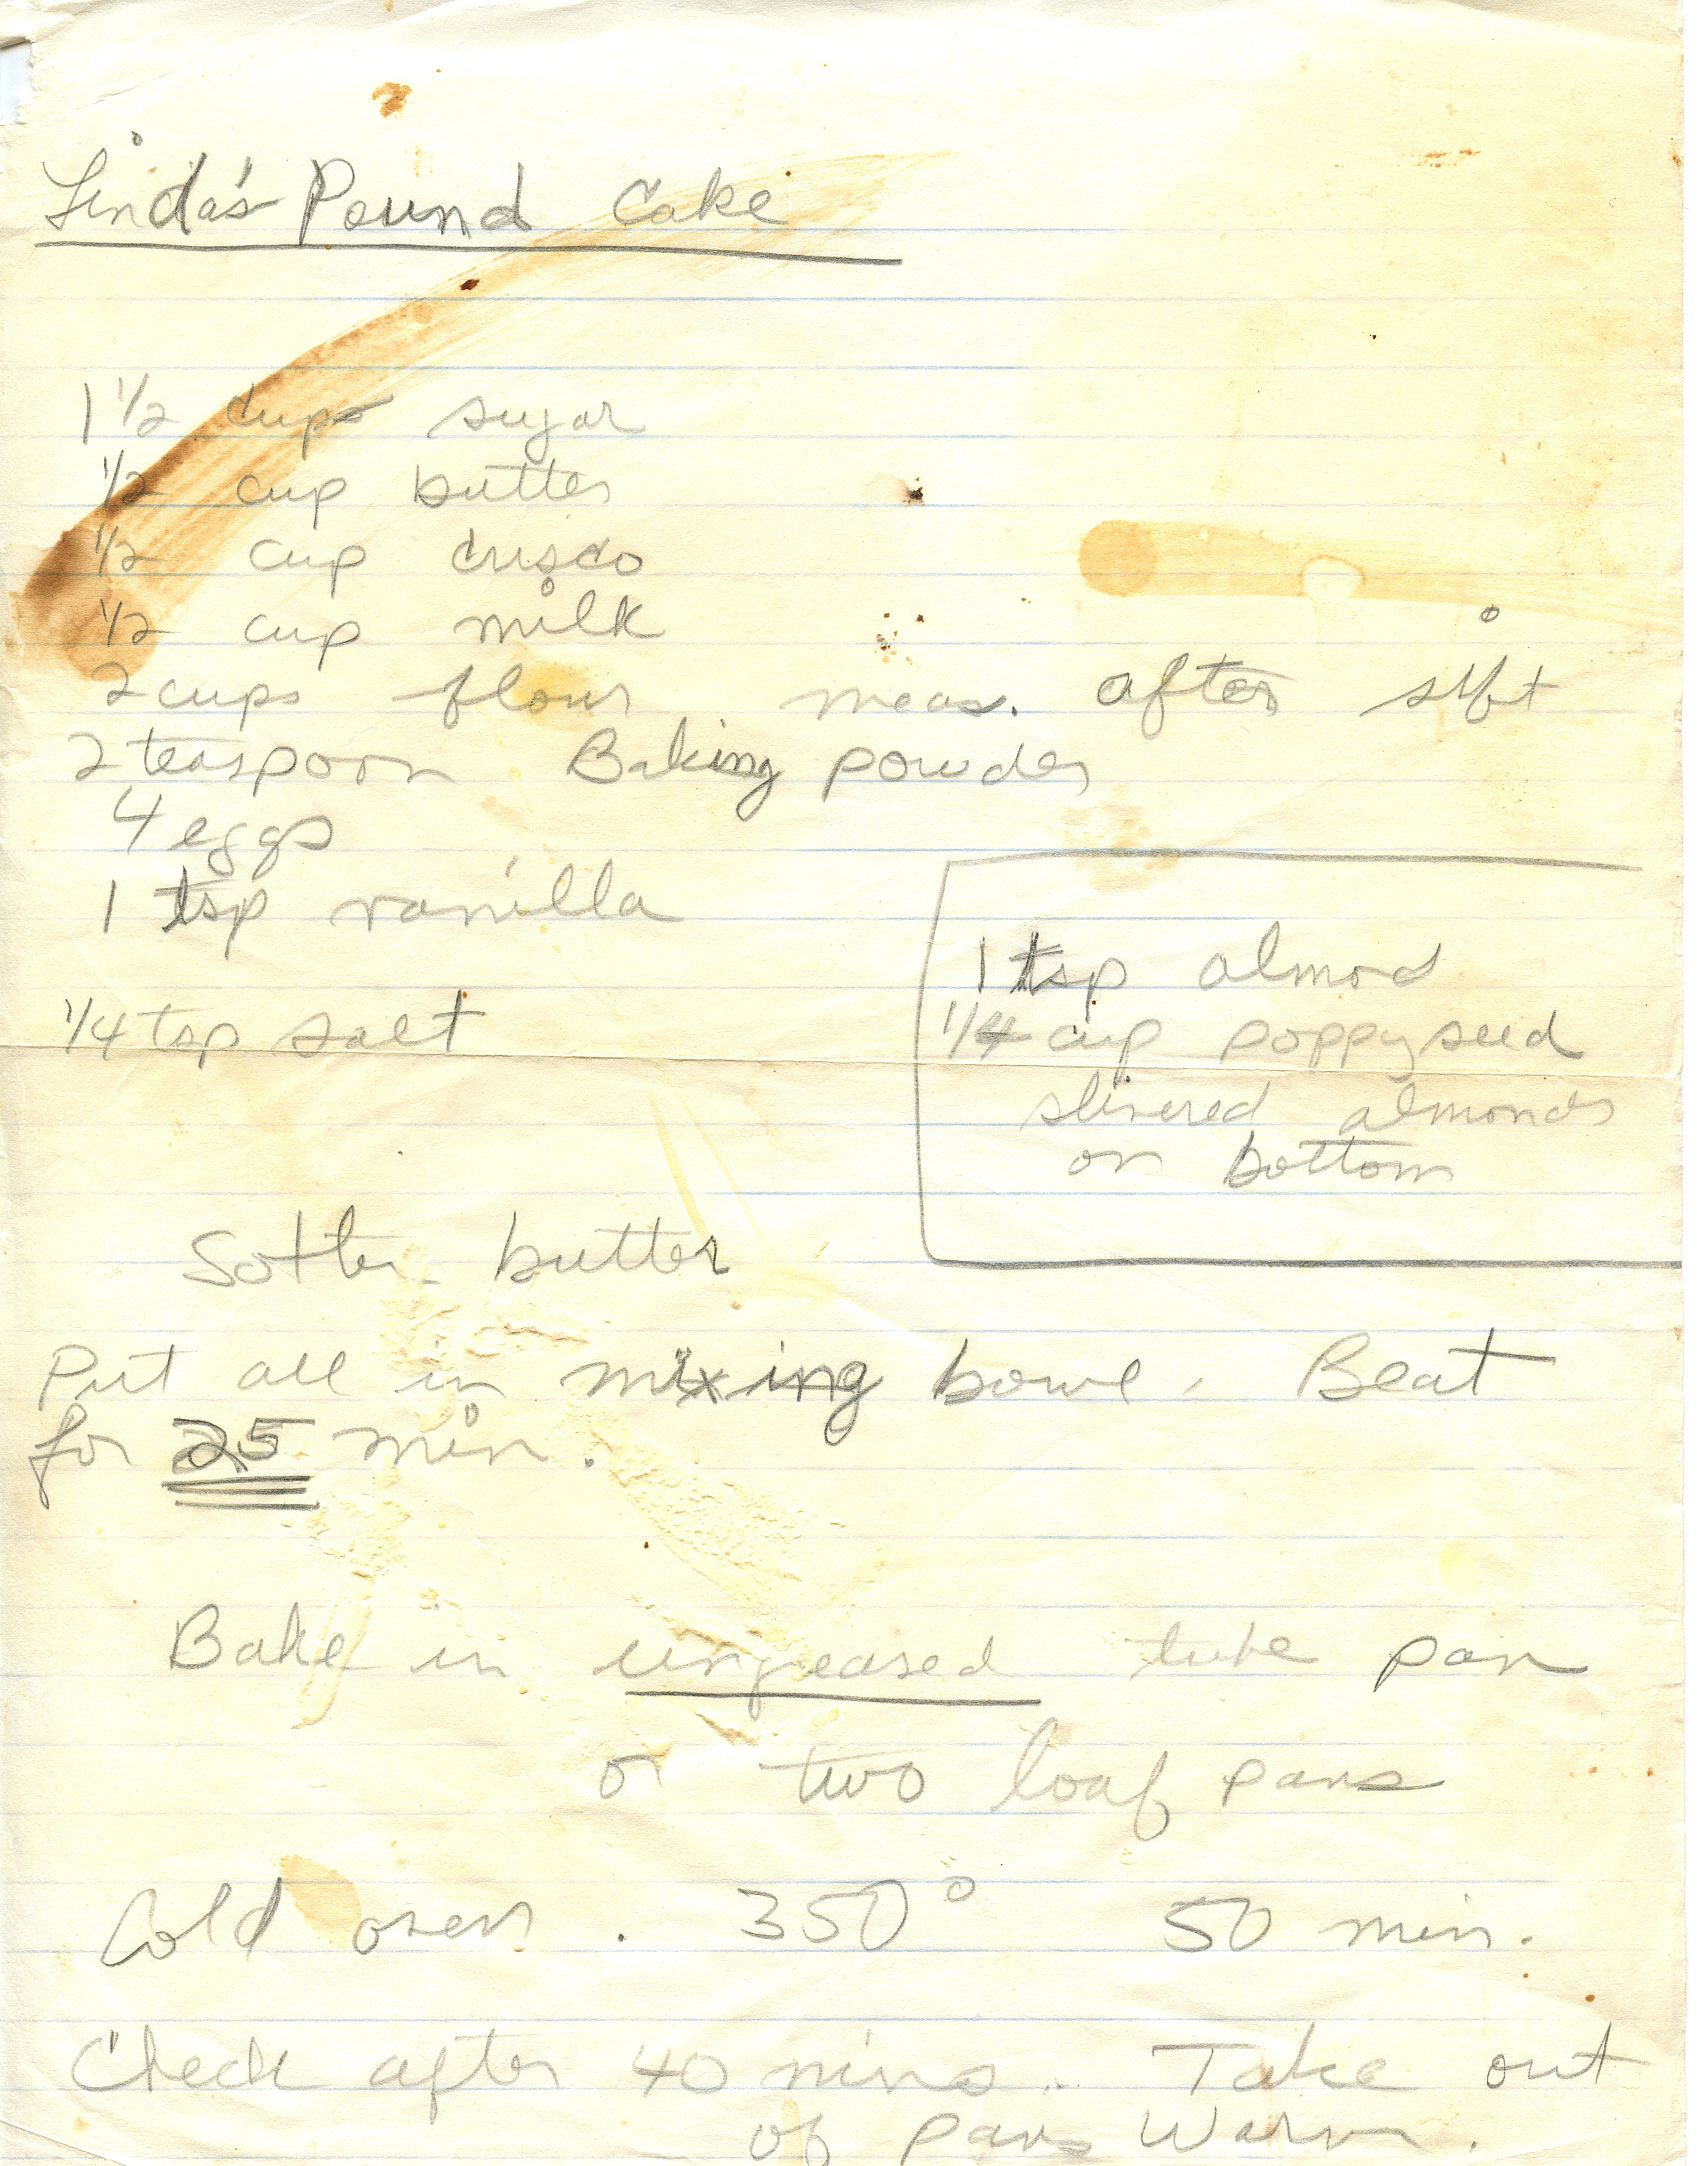 Linda's Pound Cake
1 1/2 cups sugar
1/2 cup butter
1/2 cup crisco
1/2 cup milk
2 cups flour meas. after sift
2 teaspoon Baking powder
4 eggs
1 tsp vanilla
1/4 tsp salt
1 tsp almond
1/4 cup poppyseed
slivered almonds
on bottom
Soften butter
Put all in mixing bowl. Beat
for 25 min.
Bake in ungreased tube pan
or two loaf pans
Cold oven. 350° 50 min.
Check after 40 mins. Take out
of pans warm.